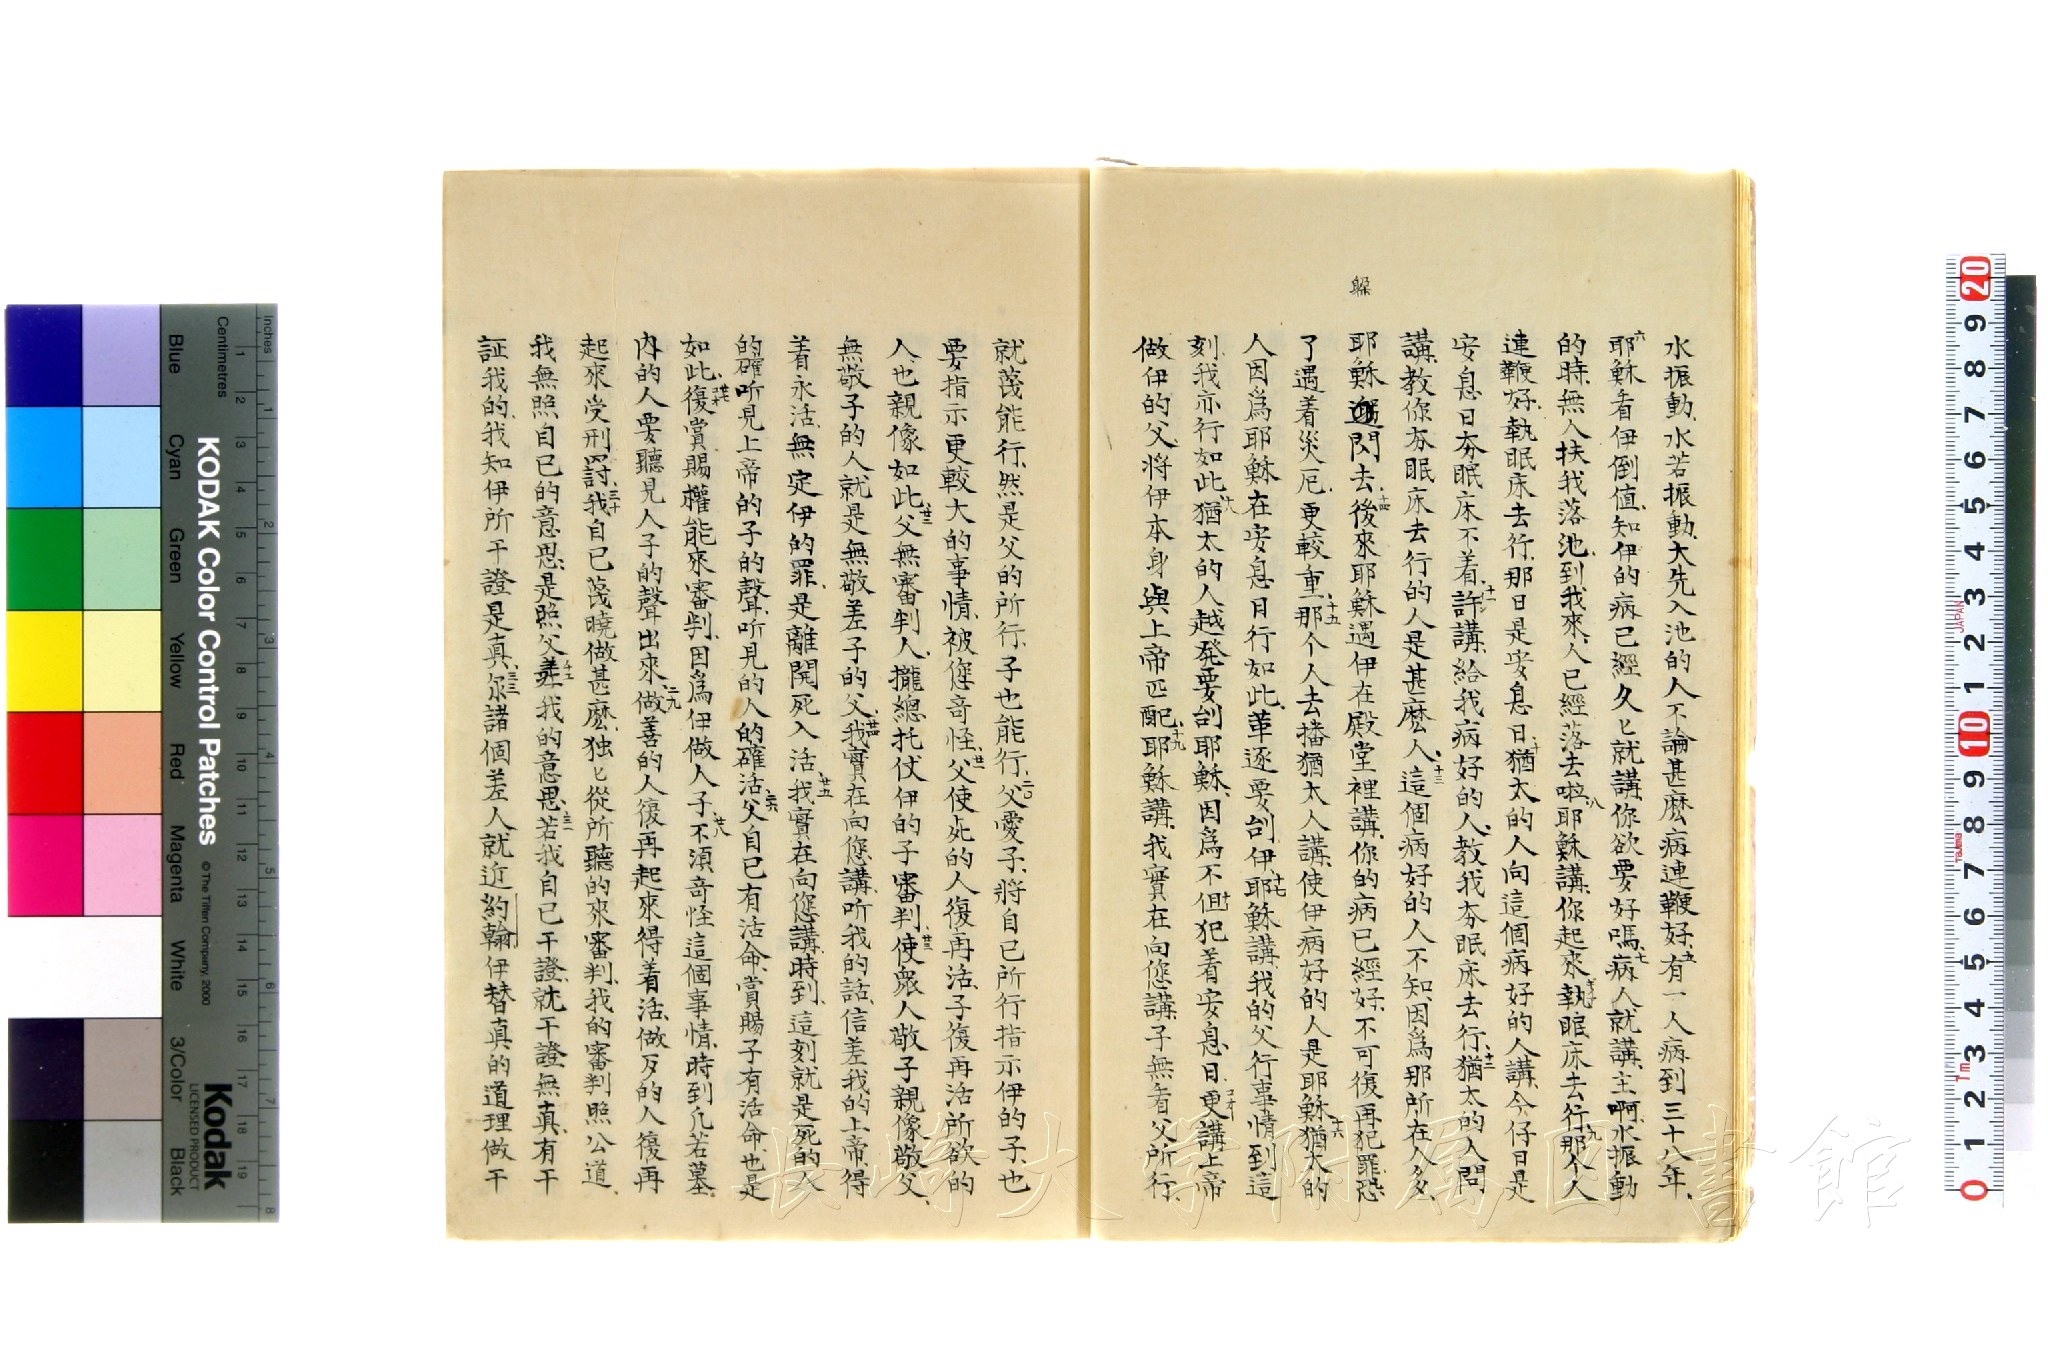 躲
水振動、水若振動、大先入池的人不論甚麽病連鞭好、五有一人病到三十八年、
六耶穌看伊倒值、知伊的病已經久匕就講、你欲要好嗎、七病人就講、主啊、水振動
的時、無人扶我落池、到我來、人已經落去啦、八耶穌講、你起來執眠床去行、九那个人
連鞭好、執眠床去行、那日是安息日、十猶太的人向這個病好的人講、今仔日是
安息日夯眠床不着、十一許講、給我病好的人、教我夯眠床去行、十二猶太的人問
講、教你夯眠床去行的人是甚麽人、十三這個病好的人不知、因爲那所在人多、
耶穌閃去、十四後來耶穌遇伊在殿堂裡講、你的病已經好、不可復再犯罪、恐
了遇着災厄、更較重、十五那个人去播猶太人講、使伊病好的人是耶穌、十六猶太的
人因爲耶穌在安息日行如此、革逐要刣伊、十七耶穌講、我的父行事情到這
刻、我亦行如此、十八猶太的人越發要刣耶穌、因爲不但犯着安息日、更講上帝
做伊的父、將伊本身與上帝匹配、十九耶穌講、我實在向您講、子無看父所行、
就蔑能行、然是父的所行、子也能行、二〇父愛子、將自已所行指示伊的子、也
要指示更較大的事情、被您奇怪、廿一父使死的人復再活、子復再活所欲的
人也親像如此、廿二父無審判人、攏總托仗伊的子審判、廿三使衆人敬子親像敬父、
無敬子的人就是無敬差子的父、廿四我實在向您講、听我的話、信差我的上帝、得
着永活、無定伊的罪、是離開死入活、廿五我實在向您講、時到、這刻就是死的人
的確听見上帝的子的聲、听見的人的確活、廿六父自已有活命、賞賜子有活命、也是
如此、廿七復賞賜權能來審判、因爲伊做人子、廿八不須奇怪這個事情、時到凡若墓
内的人要聽見人子的聲出來、二九做善的人復再起來得着活、做歹的人復再
起來受刑罰、三十我自已蔑曉做甚麽、独匕從所聽的來審判、我的審判照公道、
我無照自已的意思、是照父差我的意思、三一若我自已干證、就干證無真、有干
証我的、我知伊所干證是真、三三尔諸個差人就近約翰、伊替真的道理做干
長崎大学附属図書館
KODAK Color Control Patches
© The Tiffen Company, 2000
Kodak
LICENSED PRODUCT
Inches
Centimetres
Blue
Cyan
Green
Yellow
Red
Magenta
White
3/Color
Black